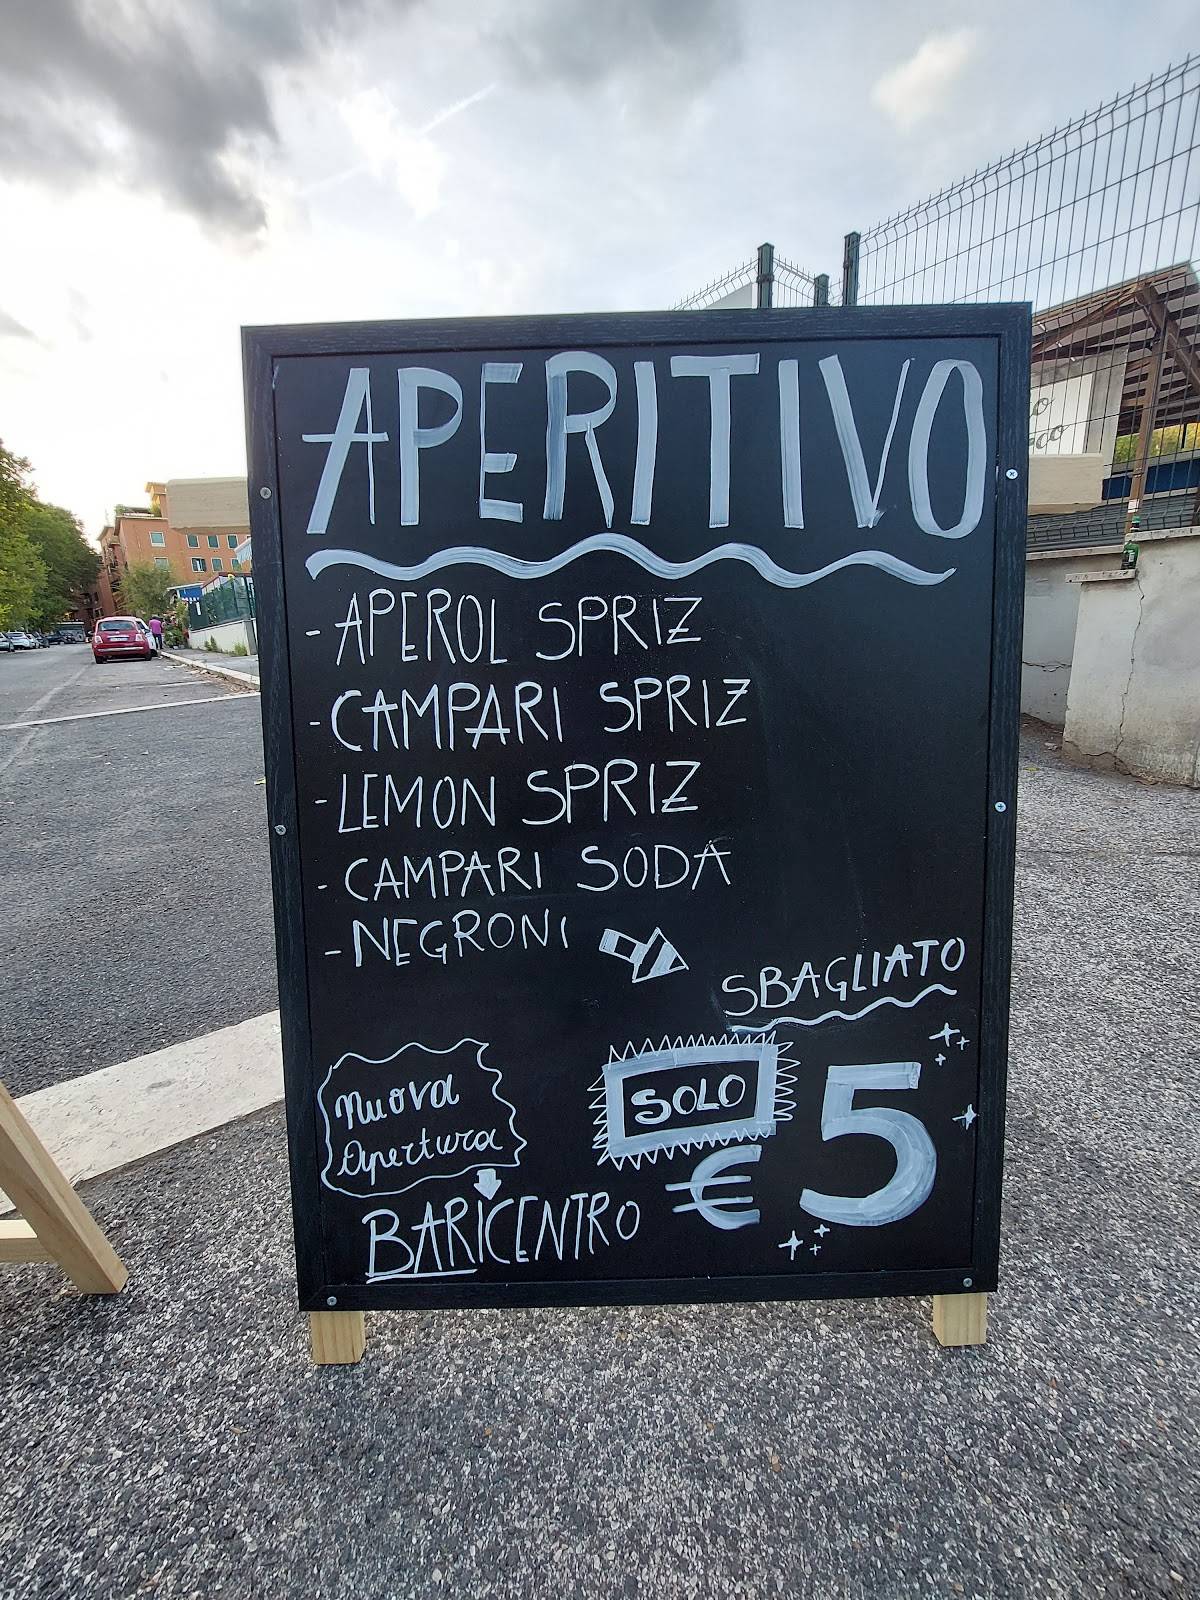 APERITIVO
- APEROL SPRIZ
- CAMPARI SPRIZ
- LEMON SPRIZ
- CAMPARI SODA
- NEGRONI
SBAGLIATO
SOLO
€ 5
Nuova
Apertura
BARICENTRO